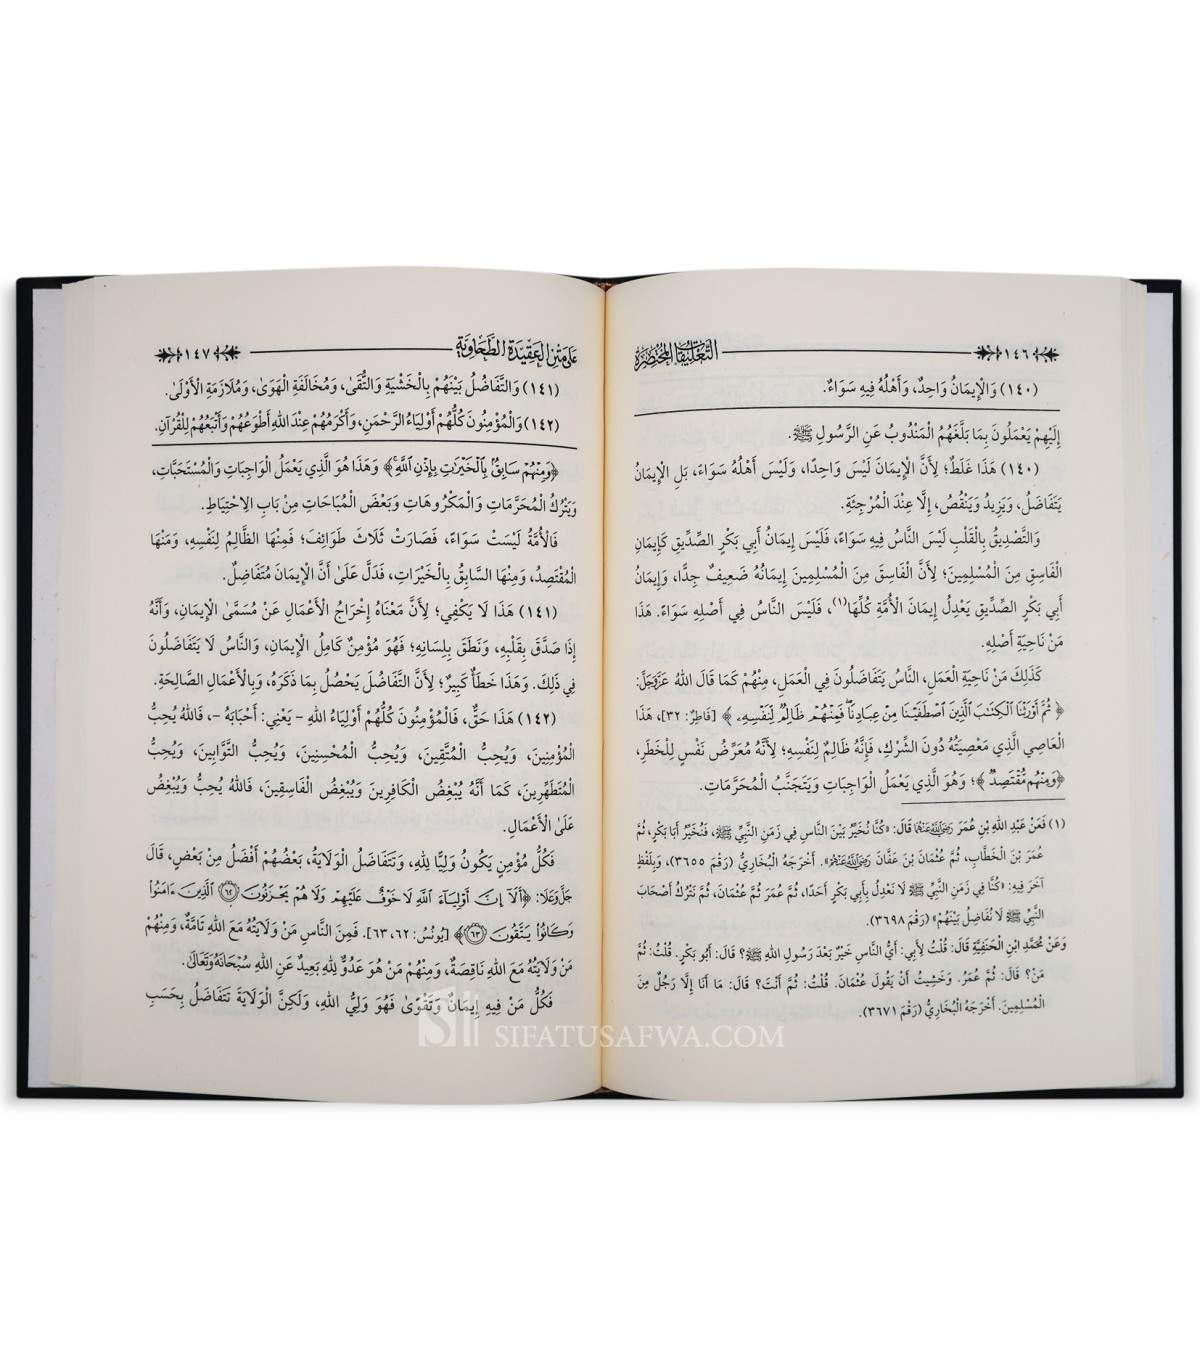 التعليقات المختصرة ١٤٦
(١٤٠) وَالْإِيمَانُ وَاحِدٌ، وَأَهْلُهُ فِيهِ سَوَاءٌ.
إِلَيْهِمْ يَعْمَلُونَ بِمَا بَلَّغَهُمُ الْمَنْدُوبُ عَنِ الرَّسُولِ ﷺ.
(١٤٠) هَذَا غَلَطٌ؛ لِأَنَّ الْإِيمَانَ لَيْسَ وَاحِدًا، وَلَيْسَ أَهْلُهُ سَوَاءً، بَلِ الْإِيمَانُ
يَتَفَاضَلُ، وَيَزِيدُ وَيَنْقُصُ، إِلَّا عِنْدَ الْمُرْجِئَةِ.
وَالتَّصْدِيقُ بِالْقَلْبِ لَيْسَ النَّاسُ فِيهِ سَوَاءً، فَلَيْسَ إِيمَانُ أَبِي بَكْرٍ الصِّدِّيقِ كَإِيمَانِ
الْفَاسِقِ مِنَ الْمُسْلِمِينَ؛ لِأَنَّ الْفَاسِقَ مِنَ الْمُسْلِمِينَ إِيمَانُهُ ضَعِيفٌ جِدًّا، وَإِيمَانُ
أَبِي بَكْرٍ الصِّدِّيقِ يَعْدِلُ إِيمَانَ الْأُمَّةِ كُلِّهَا(١)، فَلَيْسَ النَّاسُ فِي أَصْلِهِ سَوَاءً. هَذَا
مِنْ نَاحِيَةِ أَصْلِهِ.
كَذَلِكَ مَنْ نَاحِيَةِ الْعَمَلِ، النَّاسُ يَتَفَاضَلُونَ فِي الْعَمَلِ، مِنْهُمْ كَمَا قَالَ اللهُ عَزَّوَجَلَّ:
﴿ثُمَّ أَوْرَثْنَا الْكِتَابَ الَّذِينَ اصْطَفَيْنَا مِنْ عِبَادِنَا فَمِنْهُمْ ظَالِمٌ لِنَفْسِهِ﴾ [فَاطِر: ٣٢]، هَذَا
الْعَاصِي الَّذِي مَعْصِيَتُهُ دُونَ الشِّرْكِ، فَإِنَّهُ ظَالِمٌ لِنَفْسِهِ؛ لِأَنَّهُ مُعَرِّضٌ نَفْسَ لِلْخَطَرِ،
﴿وَمِنْهُمْ مُقْتَصِدٌ﴾؛ وَهُوَ الَّذِي يَعْمَلُ الْوَاجِبَاتِ وَيَتَجَنَّبُ الْمُحَرَّمَاتِ.
(١) فَعَنْ عَبْدِ اللهِ بْنِ عُمَرَ رَضِيَ اللهُ عَنْهُمَا قَالَ: «كُنَّا نُخَيِّرُ بَيْنَ النَّاسِ فِي زَمَنِ النَّبِيِّ ﷺ، فَنُخَيِّرُ أَبَا بَكْرٍ، ثُمَّ
عُمَرَ بْنَ الْخَطَّابِ، ثُمَّ عُثْمَانَ بْنَ عَفَّانَ رَضِيَ اللهُ عَنْهُمْ». أَخْرَجَهُ الْبُخَارِيُّ (رَقْم ٣٦٥٥)، وَبِلَفْظٍ
آخَرَ فِيهِ: «كُنَّا فِي زَمَنِ النَّبِيِّ ﷺ لَا نَعْدِلُ بِأَبِي بَكْرٍ أَحَدًا، ثُمَّ عُمَرَ ثُمَّ عُثْمَانَ، ثُمَّ نَتْرُكُ أَصْحَابَ
النَّبِيِّ ﷺ لَا نُفَاضِلُ بَيْنَهُمْ» (رَقْم ٣٦٩٨).
وَعَنْ مُحَمَّدِ ابْنِ الْحَنَفِيَّةِ قَالَ: قُلْتُ لِأَبِي: أَيُّ النَّاسِ خَيْرٌ بَعْدَ رَسُولِ اللهِ ﷺ؟ قَالَ: أَبُو بَكْرٍ. قُلْتُ: ثُمَّ
مَنْ؟ قَالَ: ثُمَّ عُمَرُ. وَخَشِيتُ أَنْ يَقُولَ عُثْمَانُ. قُلْتُ: ثُمَّ أَنْتَ؟ قَالَ: مَا أَنَا إِلَّا رَجُلٌ مِنَ
الْمُسْلِمِينَ. أَخْرَجَهُ الْبُخَارِيُّ (رَقْم ٣٦٧١).
على متن العقيدة الطحاوية ١٤٧
(١٤١) وَالتَّفَاضُلُ بَيْنَهُمْ بِالْخَشْيَةِ وَالتُّقَى، وَمُخَالَفَةِ الْهَوَى، وَمُلَازَمَةِ الْأَوْلَى.
(١٤٢) وَالْمُؤْمِنُونَ كُلُّهُمْ أَوْلِيَاءُ الرَّحْمَنِ، وَأَكْرَمُهُمْ عِنْدَ اللهِ أَطْوَعُهُمْ وَأَتْبَعُهُمْ لِلْقُرْآنِ.
﴿وَمِنْهُمْ سَابِقٌ بِالْخَيْرَاتِ بِإِذْنِ اللَّهِ﴾ وَهَذَا هُوَ الَّذِي يَعْمَلُ الْوَاجِبَاتِ وَالْمُسْتَحَبَّاتِ،
وَيَتْرُكُ الْمُحَرَّمَاتِ وَالْمَكْرُوهَاتِ وَبَعْضَ الْمُبَاحَاتِ مِنْ بَابِ الِاحْتِيَاطِ.
فَالْأُمَّةُ لَيْسَتْ سَوَاءً، فَصَارَتْ ثَلَاثَ طَوَائِفَ؛ فَمِنْهَا الظَّالِمُ لِنَفْسِهِ، وَمِنْهَا
الْمُقْتَصِدُ، وَمِنْهَا السَّابِقُ بِالْخَيْرَاتِ، فَدَلَّ عَلَى أَنَّ الْإِيمَانَ مُتَفَاضِلٌ.
(١٤١) هَذَا لَا يَكْفِي؛ لِأَنَّ مَعْنَاهُ إِخْرَاجُ الْأَعْمَالِ عَنْ مُسَمَّى الْإِيمَانِ، وَأَنَّهُ
إِذَا صَدَّقَ بِقَلْبِهِ، وَنَطَقَ بِلِسَانِهِ؛ فَهُوَ مُؤْمِنٌ كَامِلُ الْإِيمَانِ، وَالنَّاسُ لَا يَتَفَاضَلُونَ
فِي ذَلِكَ. وَهَذَا خَطَأٌ كَبِيرٌ؛ لِأَنَّ التَّفَاضُلَ يَحْصُلُ بِمَا ذَكَرَهُ، وَبِالْأَعْمَالِ الصَّالِحَةِ.
(١٤٢) هَذَا حَقٌّ، فَالْمُؤْمِنُونَ كُلُّهُمْ أَوْلِيَاءُ اللهِ - يَعْنِي: أَحْبَابَهُ -، فَاللهُ يُحِبُّ
الْمُؤْمِنِينَ، وَيُحِبُّ الْمُتَّقِينَ، وَيُحِبُّ الْمُحْسِنِينَ، وَيُحِبُّ التَّوَّابِينَ، وَيُحِبُّ
الْمُتَطَهِّرِينَ، كَمَا أَنَّهُ يُبْغِضُ الْكَافِرِينَ وَيُبْغِضُ الْفَاسِقِينَ، فَاللهُ يُحِبُّ وَيُبْغِضُ
عَلَى الْأَعْمَالِ.
فَكُلُّ مُؤْمِنٍ يَكُونُ وَلِيًّا لِلهِ، وَتَتَفَاضَلُ الْوَلَايَةُ، بَعْضُهُمْ أَفْضَلُ مِنْ بَعْضٍ، قَالَ
جَلَّ وَعَلَا: ﴿أَلَا إِنَّ أَوْلِيَاءَ اللَّهِ لَا خَوْفٌ عَلَيْهِمْ وَلَا هُمْ يَحْزَنُونَ ٦٢ الَّذِينَ ءَامَنُوا
وَكَانُوا يَتَّقُونَ ٦٣﴾ [يُونُس: ٦٢، ٦٣]. فَمِنَ النَّاسِ مَنْ وَلَايَتُهُ مَعَ اللهِ تَامَّةٌ، وَمِنْهُمْ
مَنْ وَلَايَتُهُ مَعَ اللهِ نَاقِصَةٌ، وَمِنْهُمْ مَنْ هُوَ عَدُوٌّ لِلهِ بَعِيدٌ عَنِ اللهِ سُبْحَانَهُ وَتَعَالَى.
فَكُلُّ مَنْ فِيهِ إِيمَانٌ وَتَقْوَى فَهُوَ وَلِيُّ اللهِ، وَلَكِنَّ الْوَلَايَةَ تَتَفَاضَلُ بِحَسَبِ
SIFATUSAFWA.COM